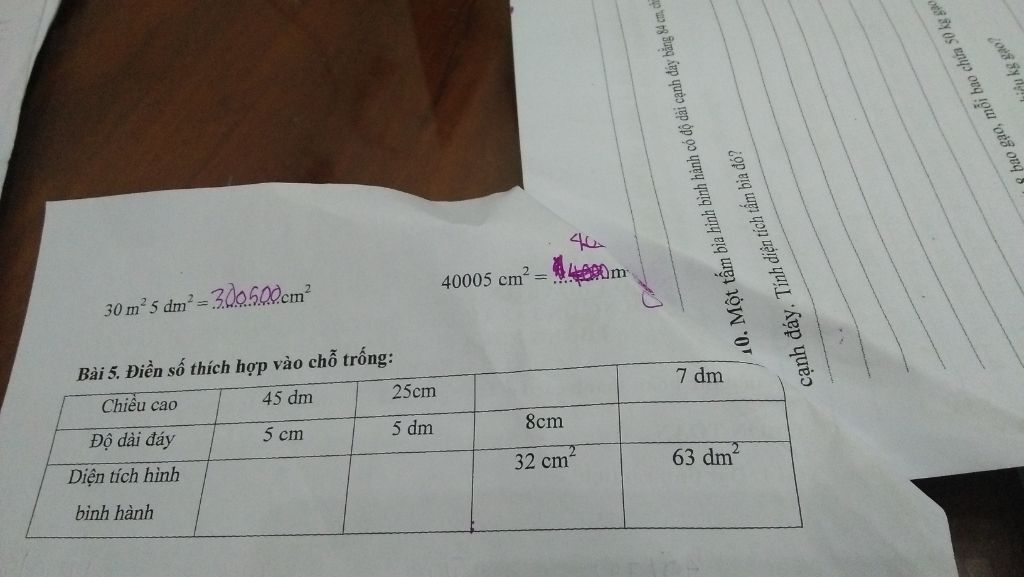 30 m² 5 dm² = 300500 cm²
40005 cm² = 4000 m
40
Bài 5. Điền số thích hợp vào chỗ trống:
Chiều cao 45 dm 25cm 7 dm
Độ dài đáy 5 cm 5 dm 8cm
Diện tích hình bình hành 32 cm² 63 dm²
10. Một tấm bìa hình bình hành có độ dài cạnh đáy bằng 84 cm,
cạnh đáy. Tính diện tích tấm bìa đó?
8 bao gạo, mỗi bao chứa 50 kg gạo
kg gạo?